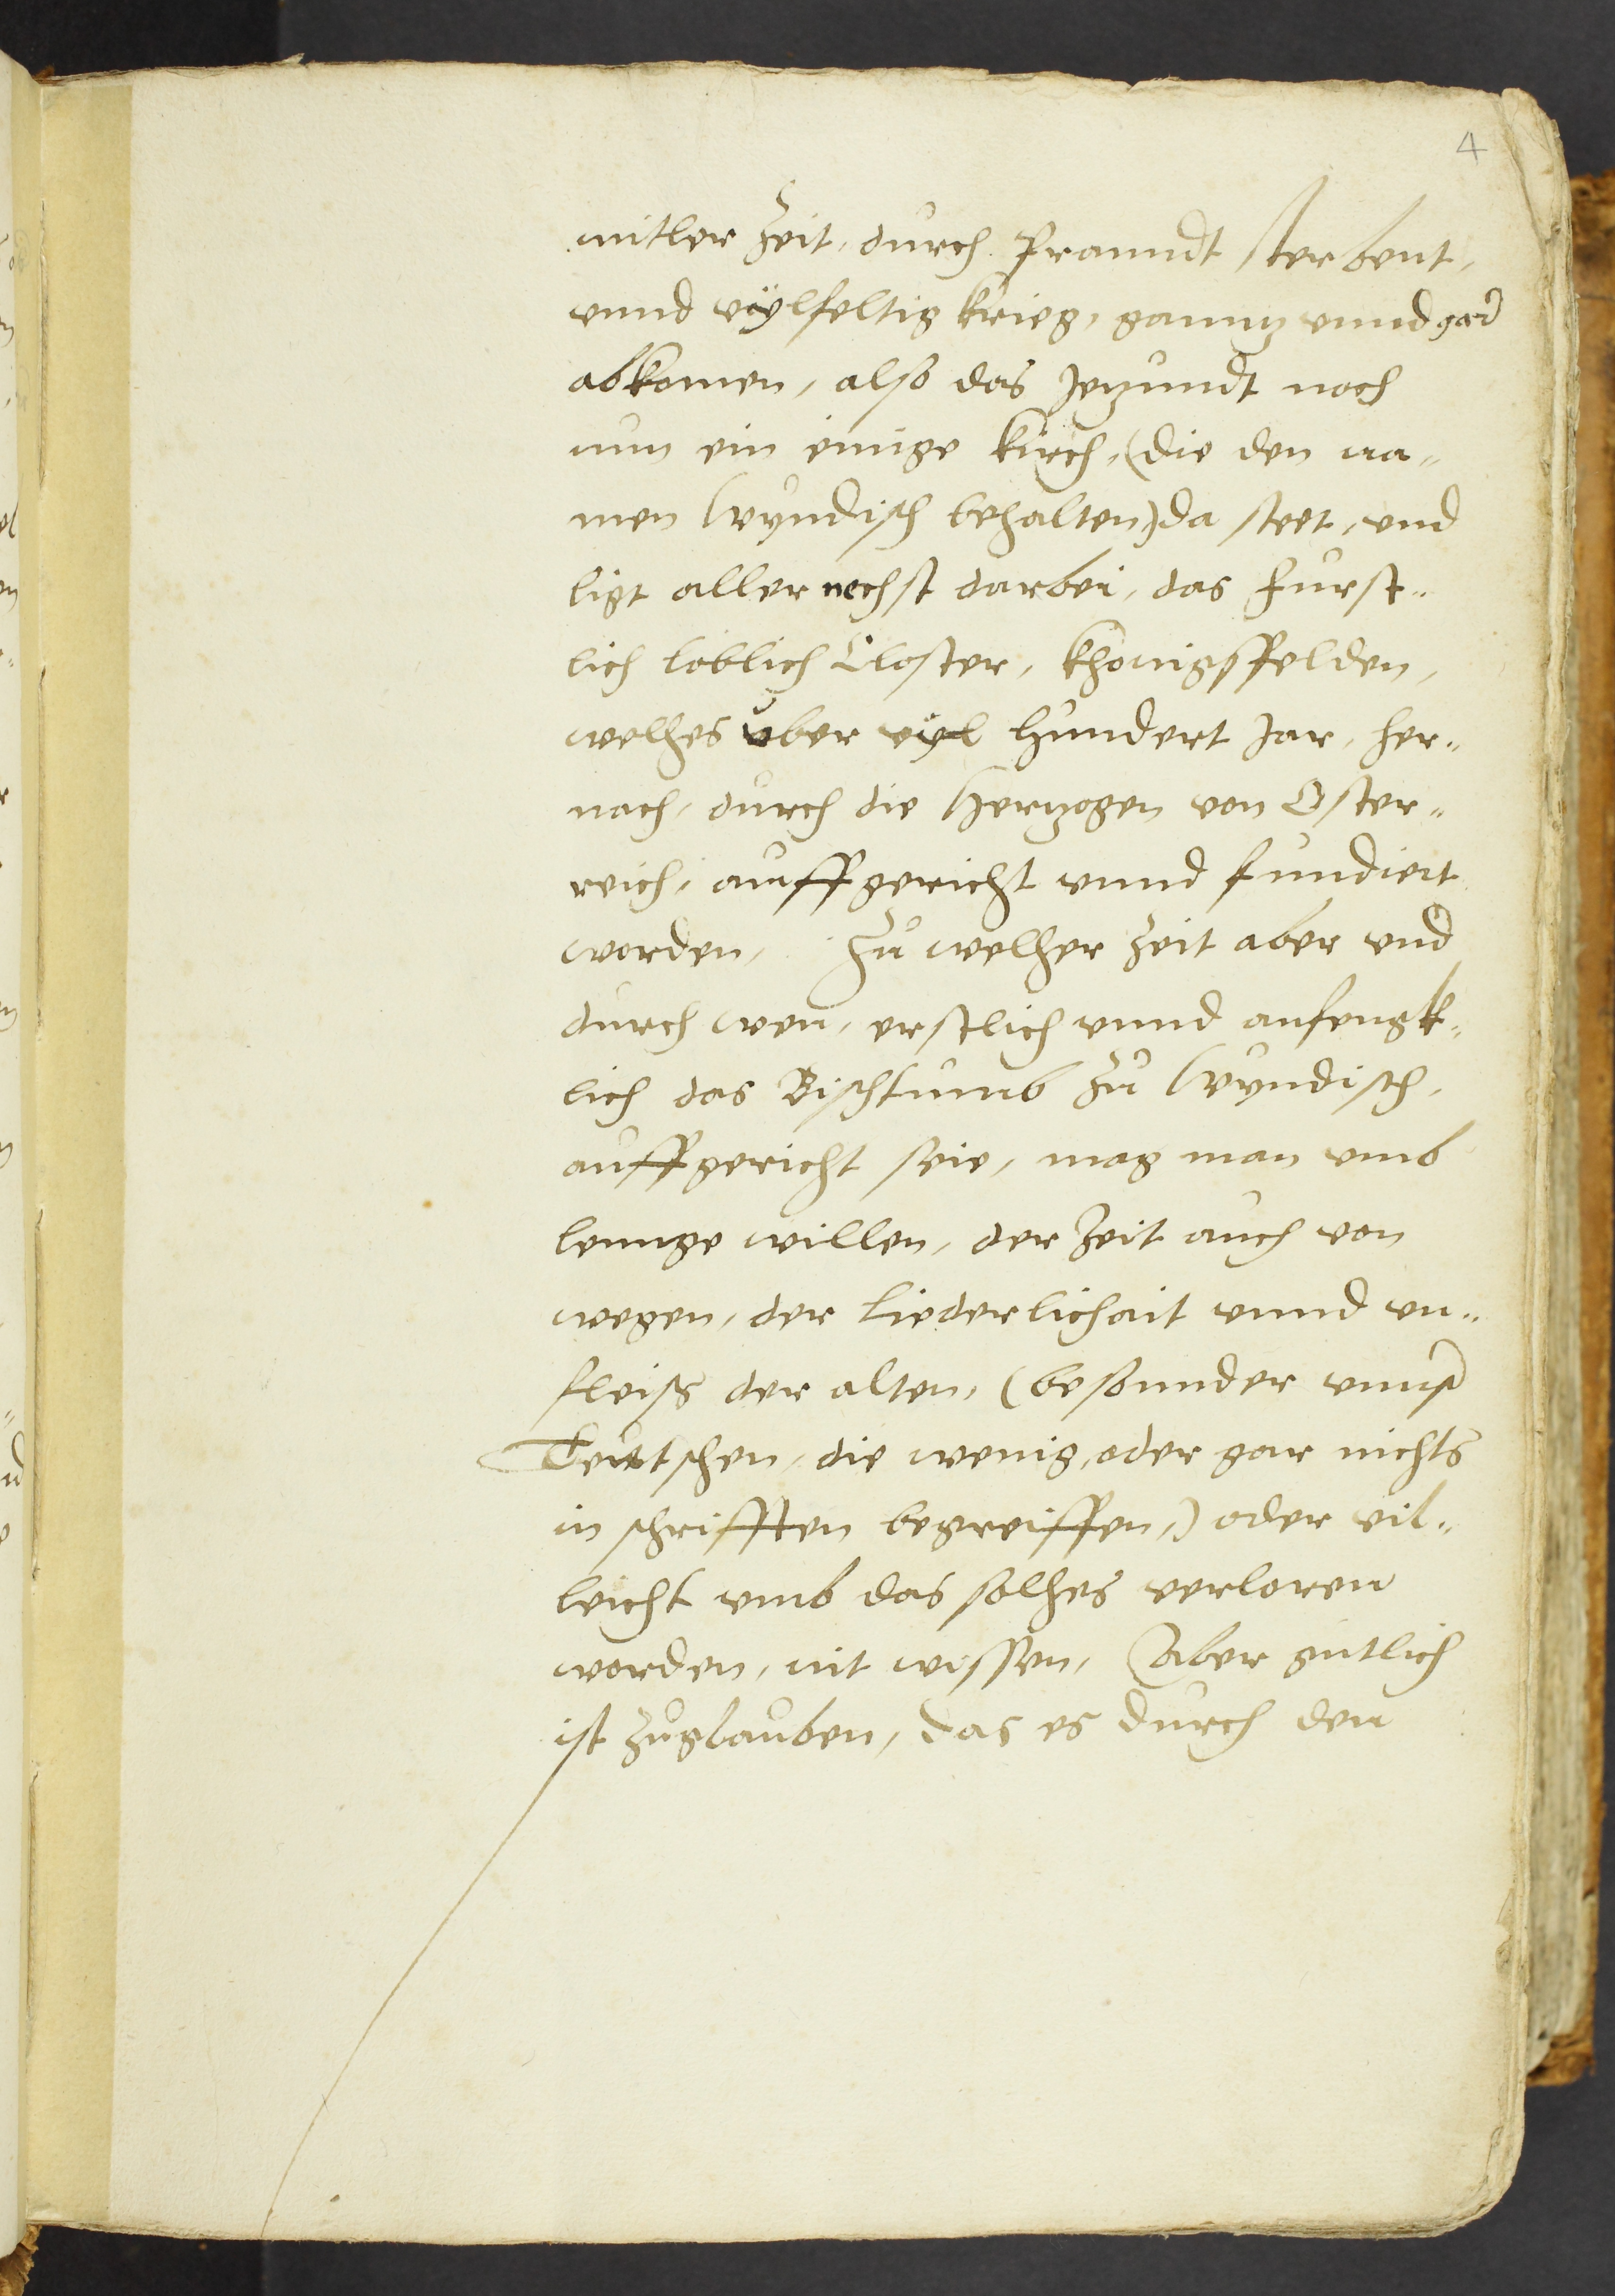 4
mitler Zeit, durch Pranndt sterbent,
vnnd vÿlfeltig krieg, ganntz vnnd gar
abkomen, also das Jetzundt noch
nun ein einige kirch, (die den na„
men Wyndisch behalten) da steet, vnd
ligt aller nechst darbei, das Furst„
lich loblich Closter, Khonigsfelden,
welhes über vÿl hundert Jar, her„
nach, durch die Hertzogen von Oster„
reich, auffgericht vnnd fundiert
worden, Zu welher Zeit aber vnd
durch wen, erstlich vnnd anfengk„
lich das Bischtumb zu Wyndisch,
auffgericht seie, mag man vmb
lennge willen, der Zeit auch von
wegen, der Liederlichait vnnd vn„
fleiss der alten, (besonnder vnnser
Teutschen, die wenig, oder gar nichts
in schrifften begreiffen,) oder vil„
leicht vmb das solhes verloren
worden, nit wissen, Aber gutlich
ist zuglauben, das es durch den